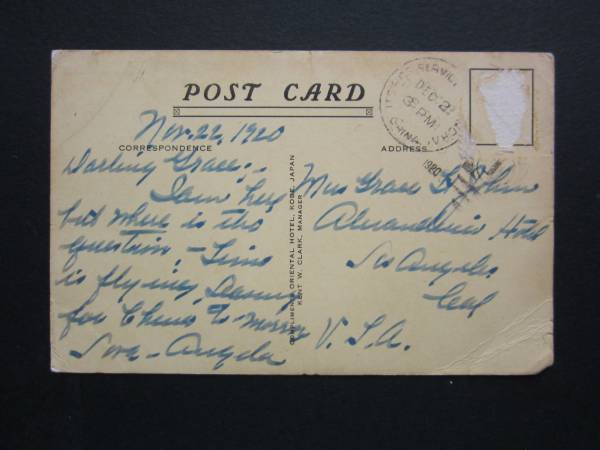 POST CARD
CORRESPONDENCE
ADDRESS
Nov. 22, 1920
Darling Grace;-
I am here
but where is the
question, - Time
is flying, Leaving
for China to-morrow
Love - Angela
COMPLIMENTS ORIENTAL HOTEL, KOBE, JAPAN
KENT W. CLARK, MANAGER
DEC 22
3 PM
1920
Miss Grace
Alexandria Hotel
Los Angeles
Cal
U. S. A.